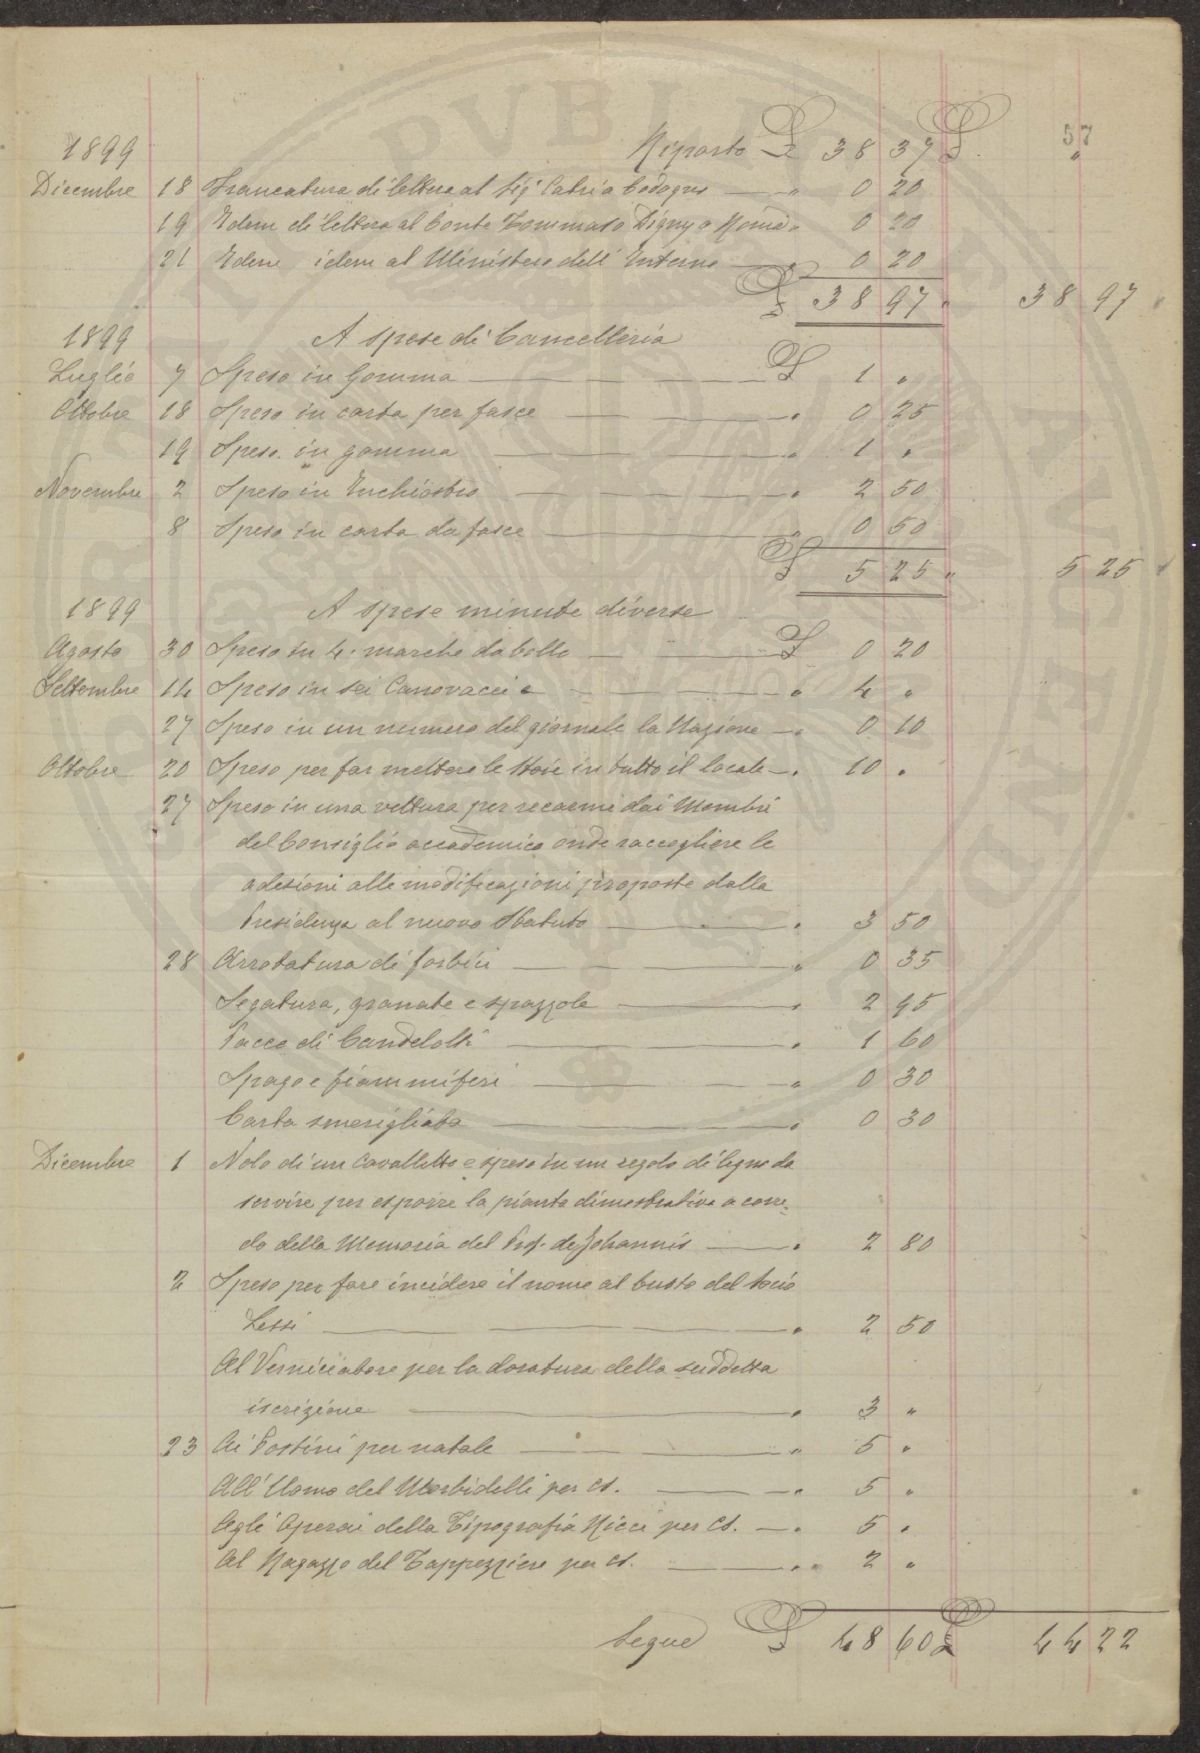 57
1899 Riporto £ 38 37 £ "
Dicembre 18 Francatura di lettera al Sig. Catri a Codogno — " 0 20
19 Idem di lettera al Conte Tommaso Digny a Roma " 0 20
21 Idem idem al Ministero dell'Interno — " 0 20
£ 38 97 " 38 97
1899 A spese di Cancelleria
Luglio 7 Spesa in Gomma — £ 1 "
Ottobre 18 Spesa in carta per fasce — " 0 25
19 Spesa in gomma — " 1 "
Novembre 2 Spesa in Inchiostro — " 2 50
8 Spesa in carta da fasce — " 0 50
£ 5 25 " 5 25
1899 A spese minute diverse
Agosto 30 Spesa in 4 marche da bollo — £ 0 20
Settembre 14 Spesa in sei Canovacci — " 4 "
27 Spesa in un numero del giornale la Nazione — " 0 10
Ottobre 20 Spesa per far mettere le stoie in tutto il locale — " 10 "
27 Spesa in una vettura per recarmi dai Membri
del Consiglio accademico onde raccogliere le
adesioni alle modificazioni proposte dalla
Presidenza al nuovo Statuto — " 3 50
28 Arrotatura di forbici — " 0 35
Segatura, granate e spazzole — " 2 95
Pacco di Candelotti — " 1 60
Spago e fiammiferi — " 0 30
Carta smerigliata — " 0 30
Dicembre 1 Nolo di un Cavalletto e spesa in un regolo di legno da
servire per esporre la pianta dimostrativa a corre-
do della Memoria del Prof. de Johannis — " 2 80
2 Spesa per fare incidere il nome al busto del Socio
Lessi — " 2 50
Al Verniciatore per la doratura della suddetta
iscrizione — " 3 "
23 Ai Postini per natale — " 5 "
All'Uomo del Morbidelli per cs. — " 5 "
Agli Operai della Tipografia Ricci per cs. — " 5 "
Al Ragazzo del Tappezziere per cs. — " 2 "
Segue £ 48 60 £ 44 22